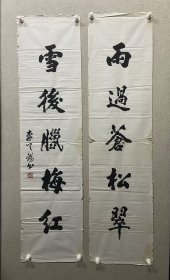 雨過蒼松翠
雪後臘梅紅